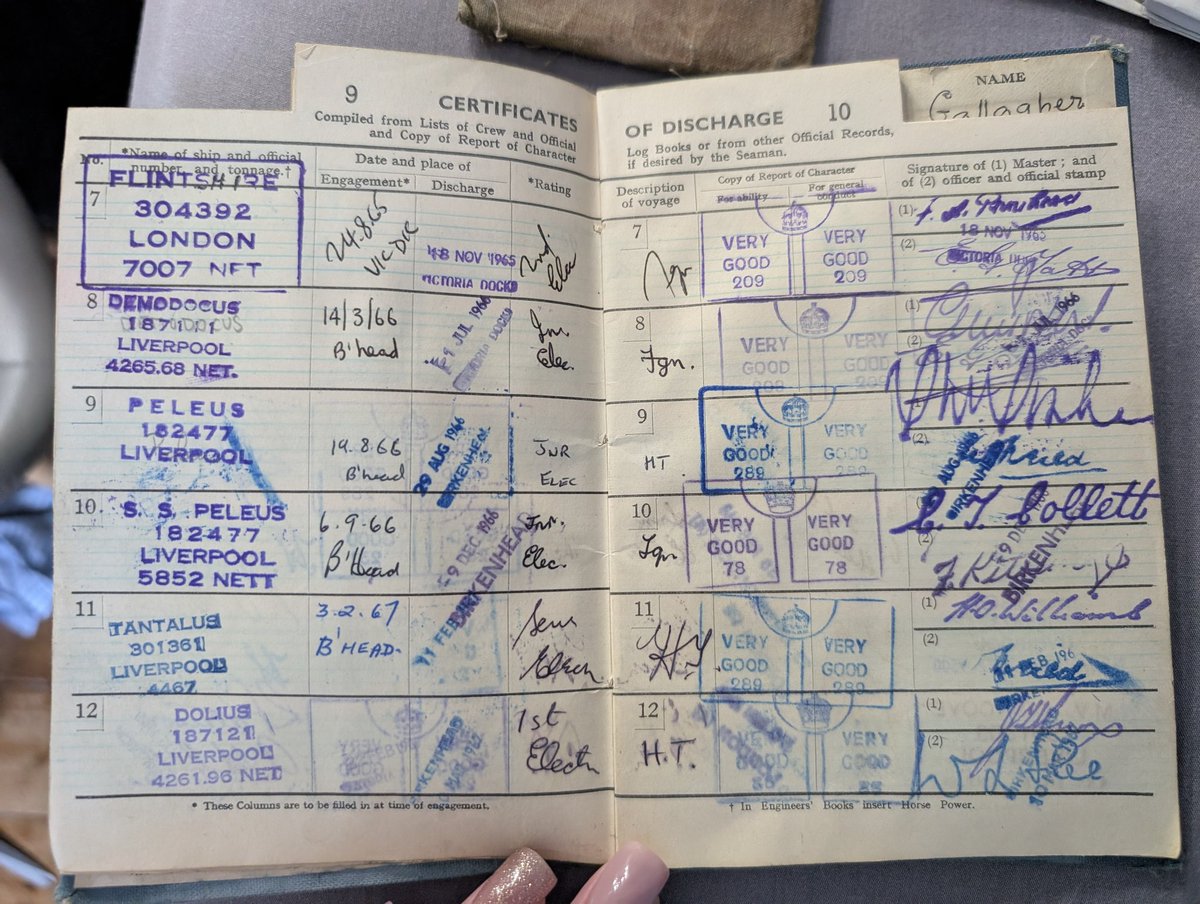 9 CERTIFICATES
Compiled from Lists of Crew and Official
and Copy of Report of Character
No.
*Name of ship and official
number, and tonnage.†
Date and place of
Engagement*
Discharge
*Rating
7
FLINTSHIRE
304392
LONDON
7007 NFT
24.8.65
VIC DK
18 NOV 1965
VICTORIA DOCKS
8
DEMODOCUS
LIVERPOOL
4265.68 NET.
14/3/66
B'head
JUL 1966
VICTORIA DOCKS
Jnr.
Elec.
9
PELEUS
182477
LIVERPOOL
19.8.66
B'head
29 AUG 1966
BIRKENHEAD
JNR
ELEC
10.
S. S. PELEUS
182477
LIVERPOOL
5852 NETT
6.9.66
B'Head
-9 DEC 1966
BIRKENHEAD
Jnr.
Elec.
11
TANTALUS
301361
LIVERPOOL
4467
3.2.67
B'HEAD.
11 FEB
12
DOLIUS
187121
LIVERPOOL
4261.96 NET
BIRKENHEAD
1st
Electn
* These Columns are to be filled in at time of engagement.
OF DISCHARGE 10
Log Books or from other Official Records,
if desired by the Seaman.
NAME
Gallagher
Description
of voyage
Copy of Report of Character
For ability
For general
conduct
Signature of (1) Master; and
of (2) officer and official stamp
7
VERY
GOOD
209
VERY
GOOD
209
(1)
18 NOV 1965
(2)
VICTORIA
8
Fgn.
VERY
GOOD
209
VERY
GOOD
209
(1)
(2)
9
HT
VERY
GOOD
289
VERY
GOOD
289
(2)
29 AUG 1966
BIRKENHEAD
10
Fgn.
VERY
GOOD
78
VERY
GOOD
78
Collett
-9 DEC
BIRKENHEAD
11
VERY
GOOD
289
VERY
GOOD
289
(1)
H.O. Williams
(2)
FEB 196
BIRKENHEAD
12
H.T.
VERY
GOOD
VERY
GOOD
(1)
(2)
BIRKENHEAD
† In Engineers' Books insert Horse Power.